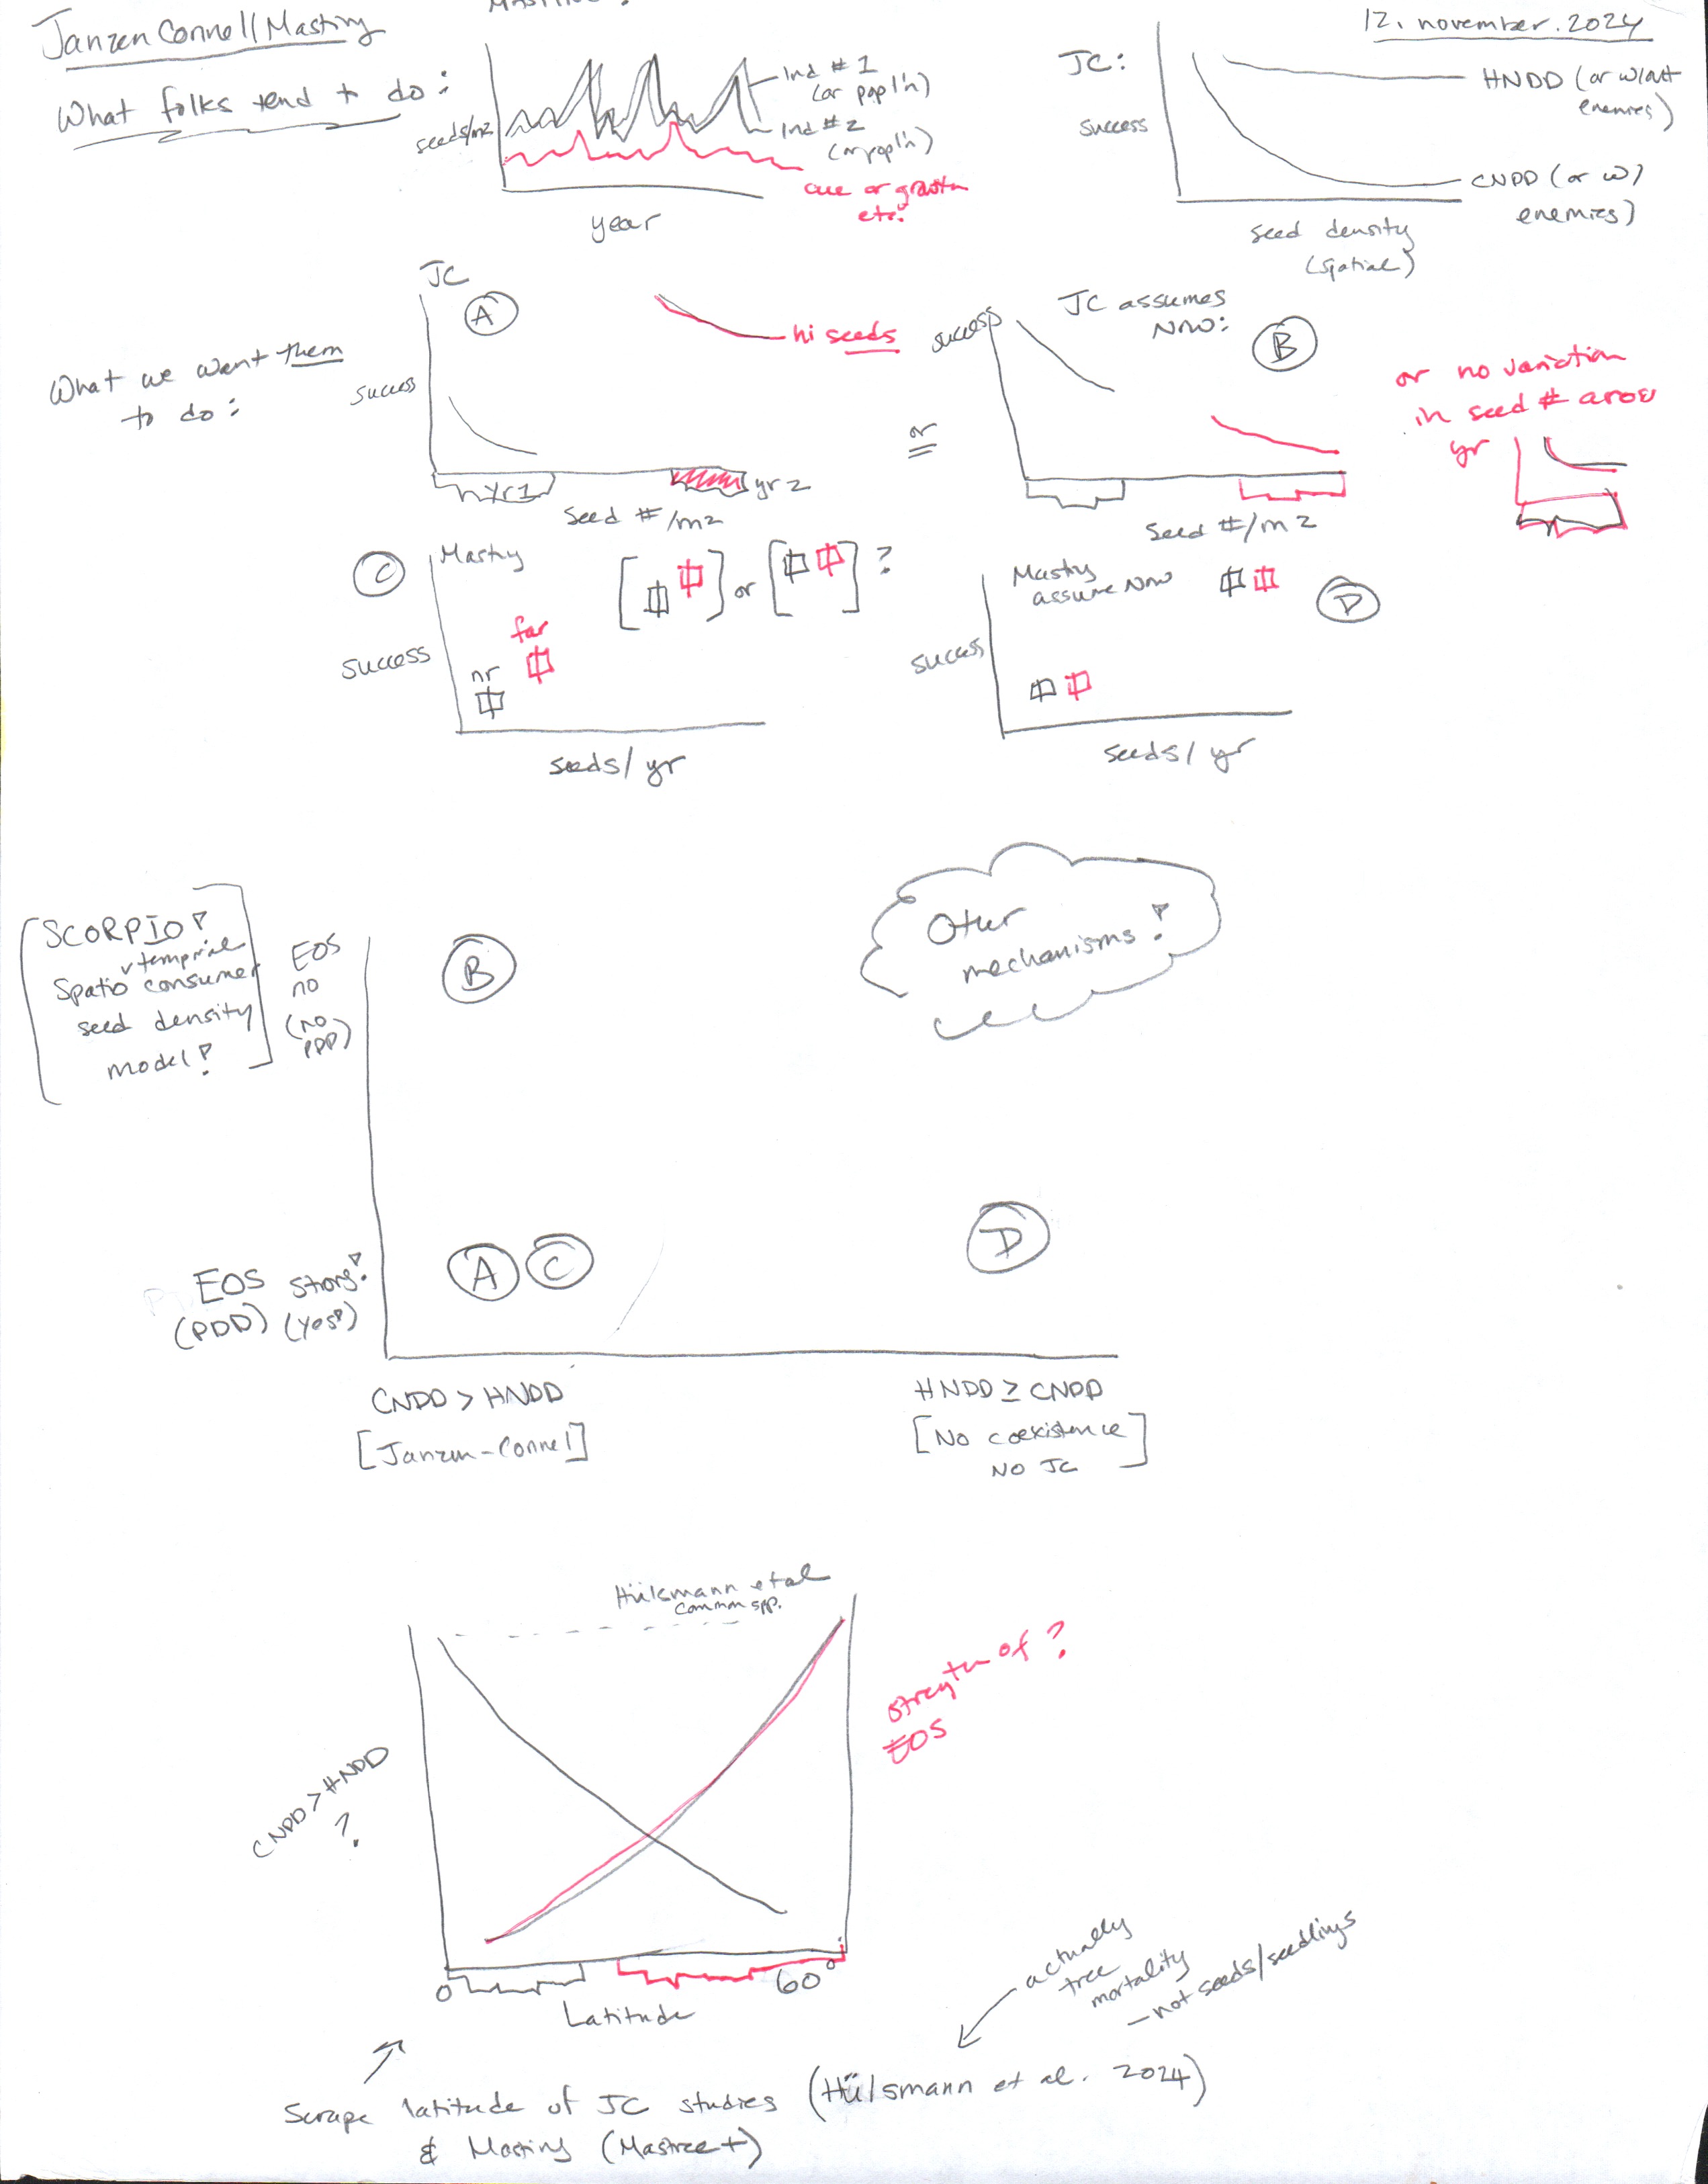 Janzen Connell Masting
12. november. 2024
What folks tend to do:
seeds/m2
Ind # 1
(or popl'n)
Ind # 2
(or popl'n)
cue or growth
etc.
year
JC:
success
HNDD (or w/out
enemies)
CNDD (or w/
enemies)
seed density
(spatial)
What we want them
to do:
JC
A
success
hi seeds
yr1
yr 2
Seed #/m2
or
success
JC assumes
now:
B
Seed #/m2
or no variation
in seed # across
yr
C
Masting
success
nr
far
or
?
seeds/yr
Masting
assume now
D
success
seeds/yr
SCORPIO!
temporal
Spatio consumer
seed density
model!
EOS
no
(no
PDD)
B
Other
mechanisms!
A
C
D
EOS strong!
(PDD) (yes!)
CNDD > HNDD
[Janzen-Connel]
HNDD ≥ CNDD
[No coexistence
NO JC]
Hülsmann et al
common spp.
CNDD > HNDD
?
strength of ?
EOS
0
60°
Latitude
actually
tree
mortality
- not seeds/seedlings
Scrape latitude of JC studies (Hülsmann et al. 2024)
& Masting (Mastree+)